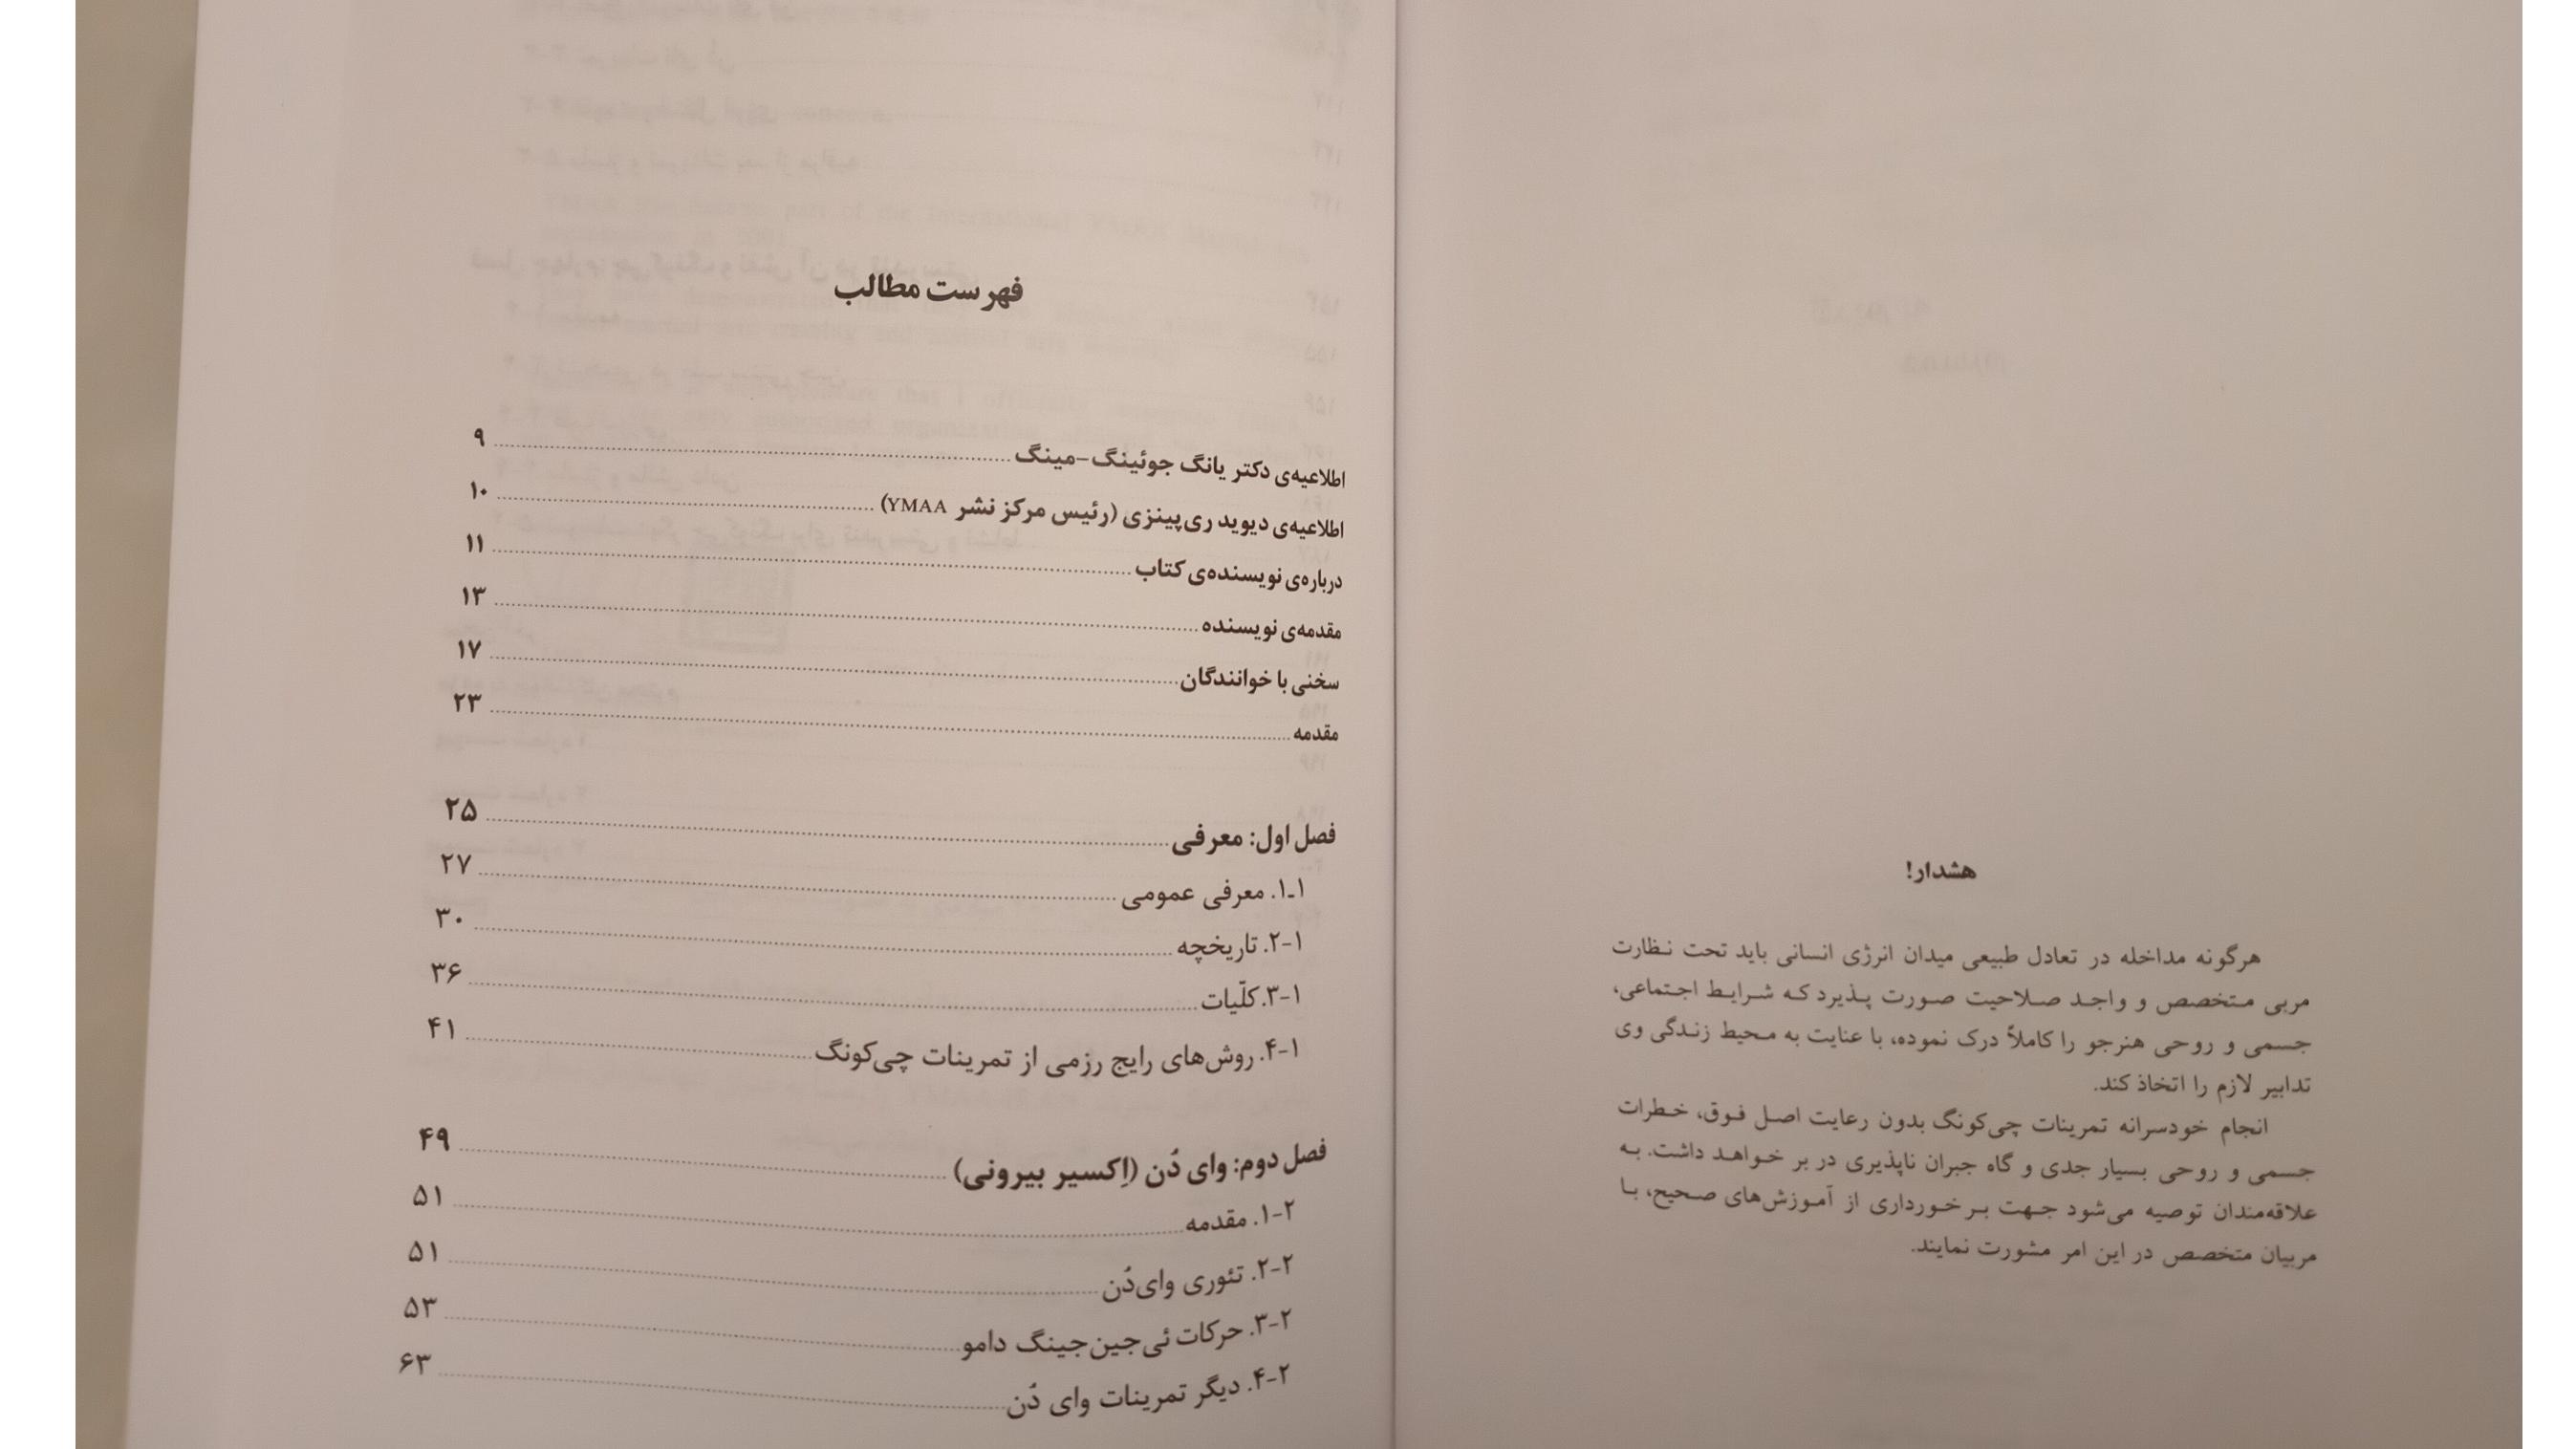 هشدار!
هرگونه مداخله در تعادل طبیعی میدان انرژی انسانی باید تحت نظارت
مربی متخصص و واجد صلاحیت صورت پذیرد که شرایط اجتماعی،
جسمی و روحی هنرجو را کاملاً درک نموده، با عنایت به محیط زندگی وی
تدابیر لازم را اتخاذ کند.
انجام خودسرانه تمرینات چی‌کونگ بدون رعایت اصل فوق، خطرات
جسمی و روحی بسیار جدی و گاه جبران ناپذیری در بر خواهد داشت. به
علاقه‌مندان توصیه می‌شود جهت برخورداری از آموزش‌های صحیح، با
مربیان متخصص در این امر مشورت نمایند.
فهرست مطالب
اطلاعیه‌ی دکتر یانگ جوئینگ-مینگ ۹
اطلاعیه‌ی دیوید ری‌پینزی (رئیس مرکز نشر YMAA) ۱۰
درباره‌ی نویسنده‌ی کتاب ۱۱
مقدمه‌ی نویسنده ۱۳
سخنی با خوانندگان ۱۷
مقدمه ۲۳
فصل اول: معرفی ۲۵
۱-۱. معرفی عمومی ۲۷
۱-۲. تاریخچه ۳۰
۱-۳. کلّیات ۳۶
۱-۴. روش‌های رایج رزمی از تمرینات چی‌کونگ ۴۱
فصل دوم: وای دُن (اِکسیر بیرونی) ۴۹
۲-۱. مقدمه ۵۱
۲-۲. تئوری وای‌دُن ۵۱
۲-۳. حرکات ئی‌جین‌جینگ دامو ۵۳
۲-۴. دیگر تمرینات وای دُن ۶۳